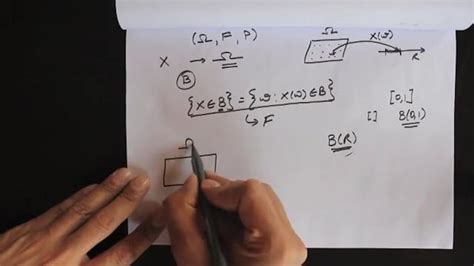 (Ω, F, P)
X → Ω
Ω
X(ω)
R
B
{X ∈ B} = {ω : X(ω) ∈ B}
↳ F
[0,1]
[ ] B(0,1)
B(R)
Ω